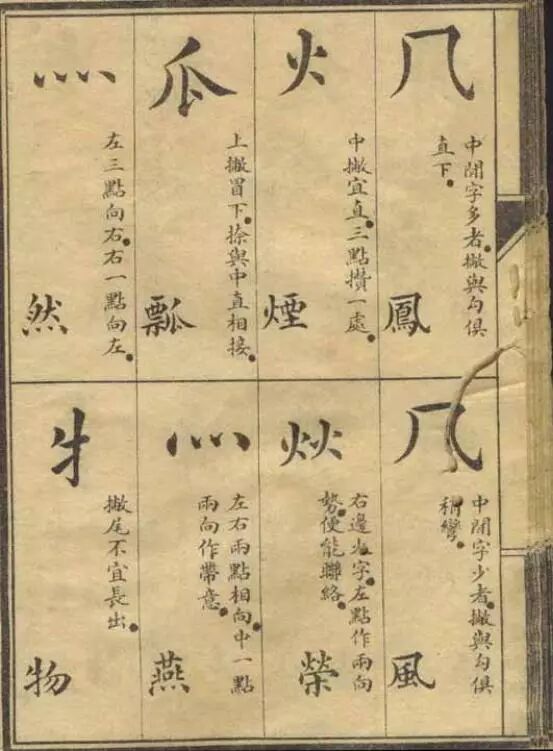 𠘨
中閒字多者。撇與勾俱
直下。
鳳
火
中撇宜直。三點攢一處。
煙
瓜
上撇冒下。捺與中直相接。
瓢
灬
左三點向右。右一點向左。
然
𠘨
中閒字少者。撇與勾俱
稍彎。
風
炏
右邊火字。左點作兩向
勢。便能聯絡。
榮
灬
左右兩點相向。中一點
兩向作帶意。
燕
牜
撇尾不宜長出。
物